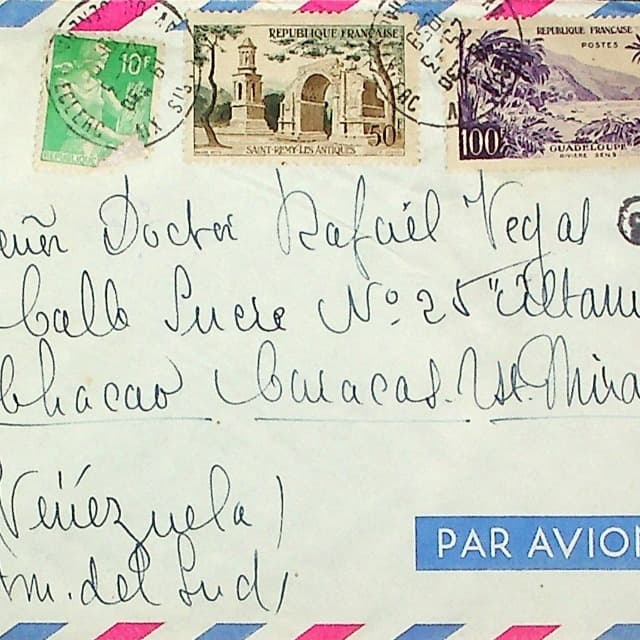 10F
REPUBLIQUE FRANÇAISE
50F
SAINT-REMY-LES ANTIQUES
REPUBLIQUE FRANÇAISE
POSTES
100F
GUADELOUPE
RIVIERE SENS
LECLERC
eñor Doctor Rafaél Vegas
Calle Sucre Nº 25 "Altami
Chacao Caracas. Est. Mira
(Venezuela)
Am. del Sud)
PAR AVION